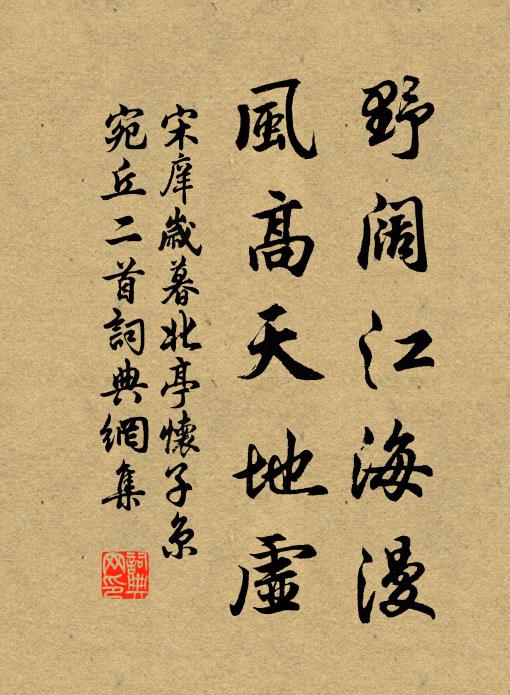 野闊江海漫
風高天地虛
宋庠歲暮北亭懷子京
宛丘二首詞典網集
詞典網印